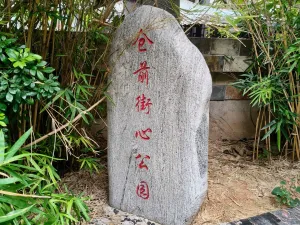 仓前街心公园